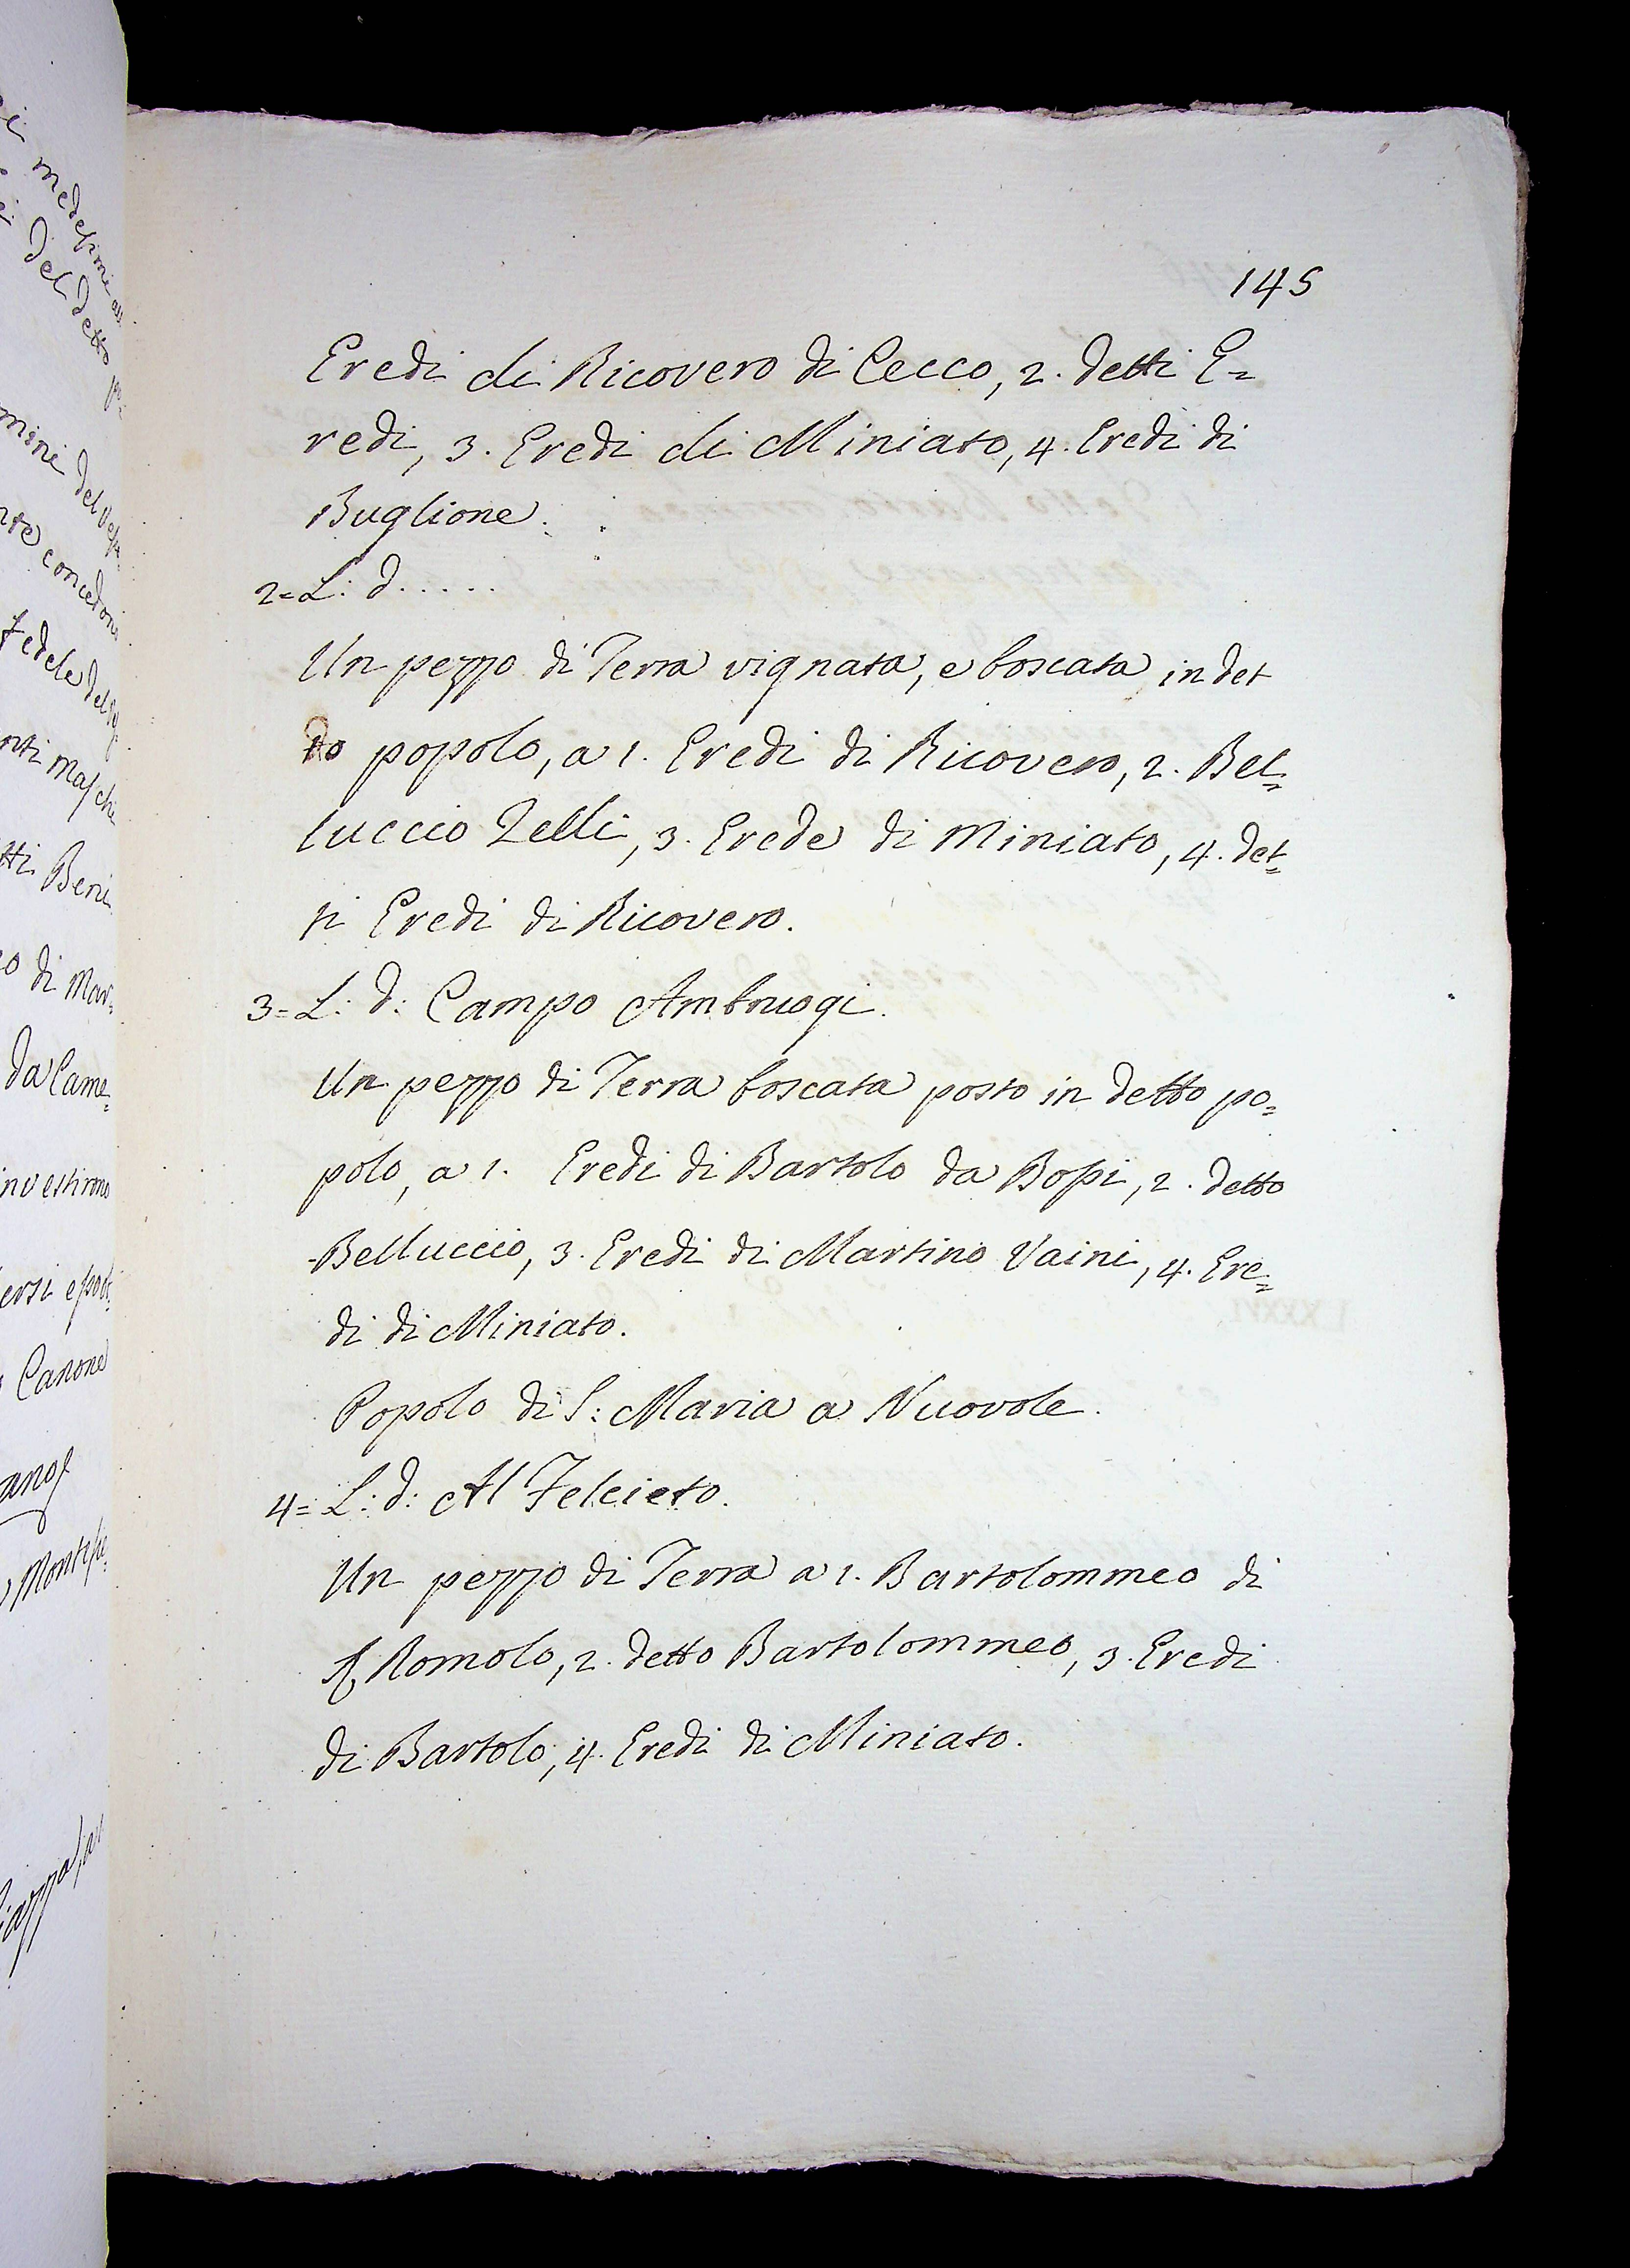 145
Eredi di Ricovero di Cecco, 2. detti E=
redi, 3. Eredi di Miniato, 4. Eredi di
Buglione.
2= L: d.....
Un pezzo di Terra vignata, e boscata in det
to popolo, a 1. Eredi di Ricovero, 2. Bel=
luccio Lelli, 3. Erede di Miniato, 4. det=
ti Eredi di Ricovero.
3= L: d: Campo Ambruogi.
Un pezzo di Terra boscata posto in detto po=
polo, a 1. Eredi di Bartolo da Bossi, 2. detto
Belluccio, 3. Eredi di Martino Vaini, 4. Ere=
di di Miniato.
Popolo di S: Maria a Nuovole.
4= L: d: Al Felcieto.
Un pezzo di Terra a 1. Bartolommeo di
Romolo, 2. detto Bartolommeo, 3. Eredi
di Bartolo, 4. Eredi di Miniato.